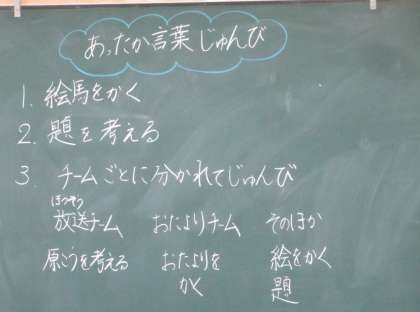 あったか言葉じゅんび
1. 絵馬をかく
2. 題を考える
3. チームごとに分かれてじゅんび
ほうそう
放送チーム おたよりチーム そのほか
原こうを考える おたよりを 絵をかく
かく 題